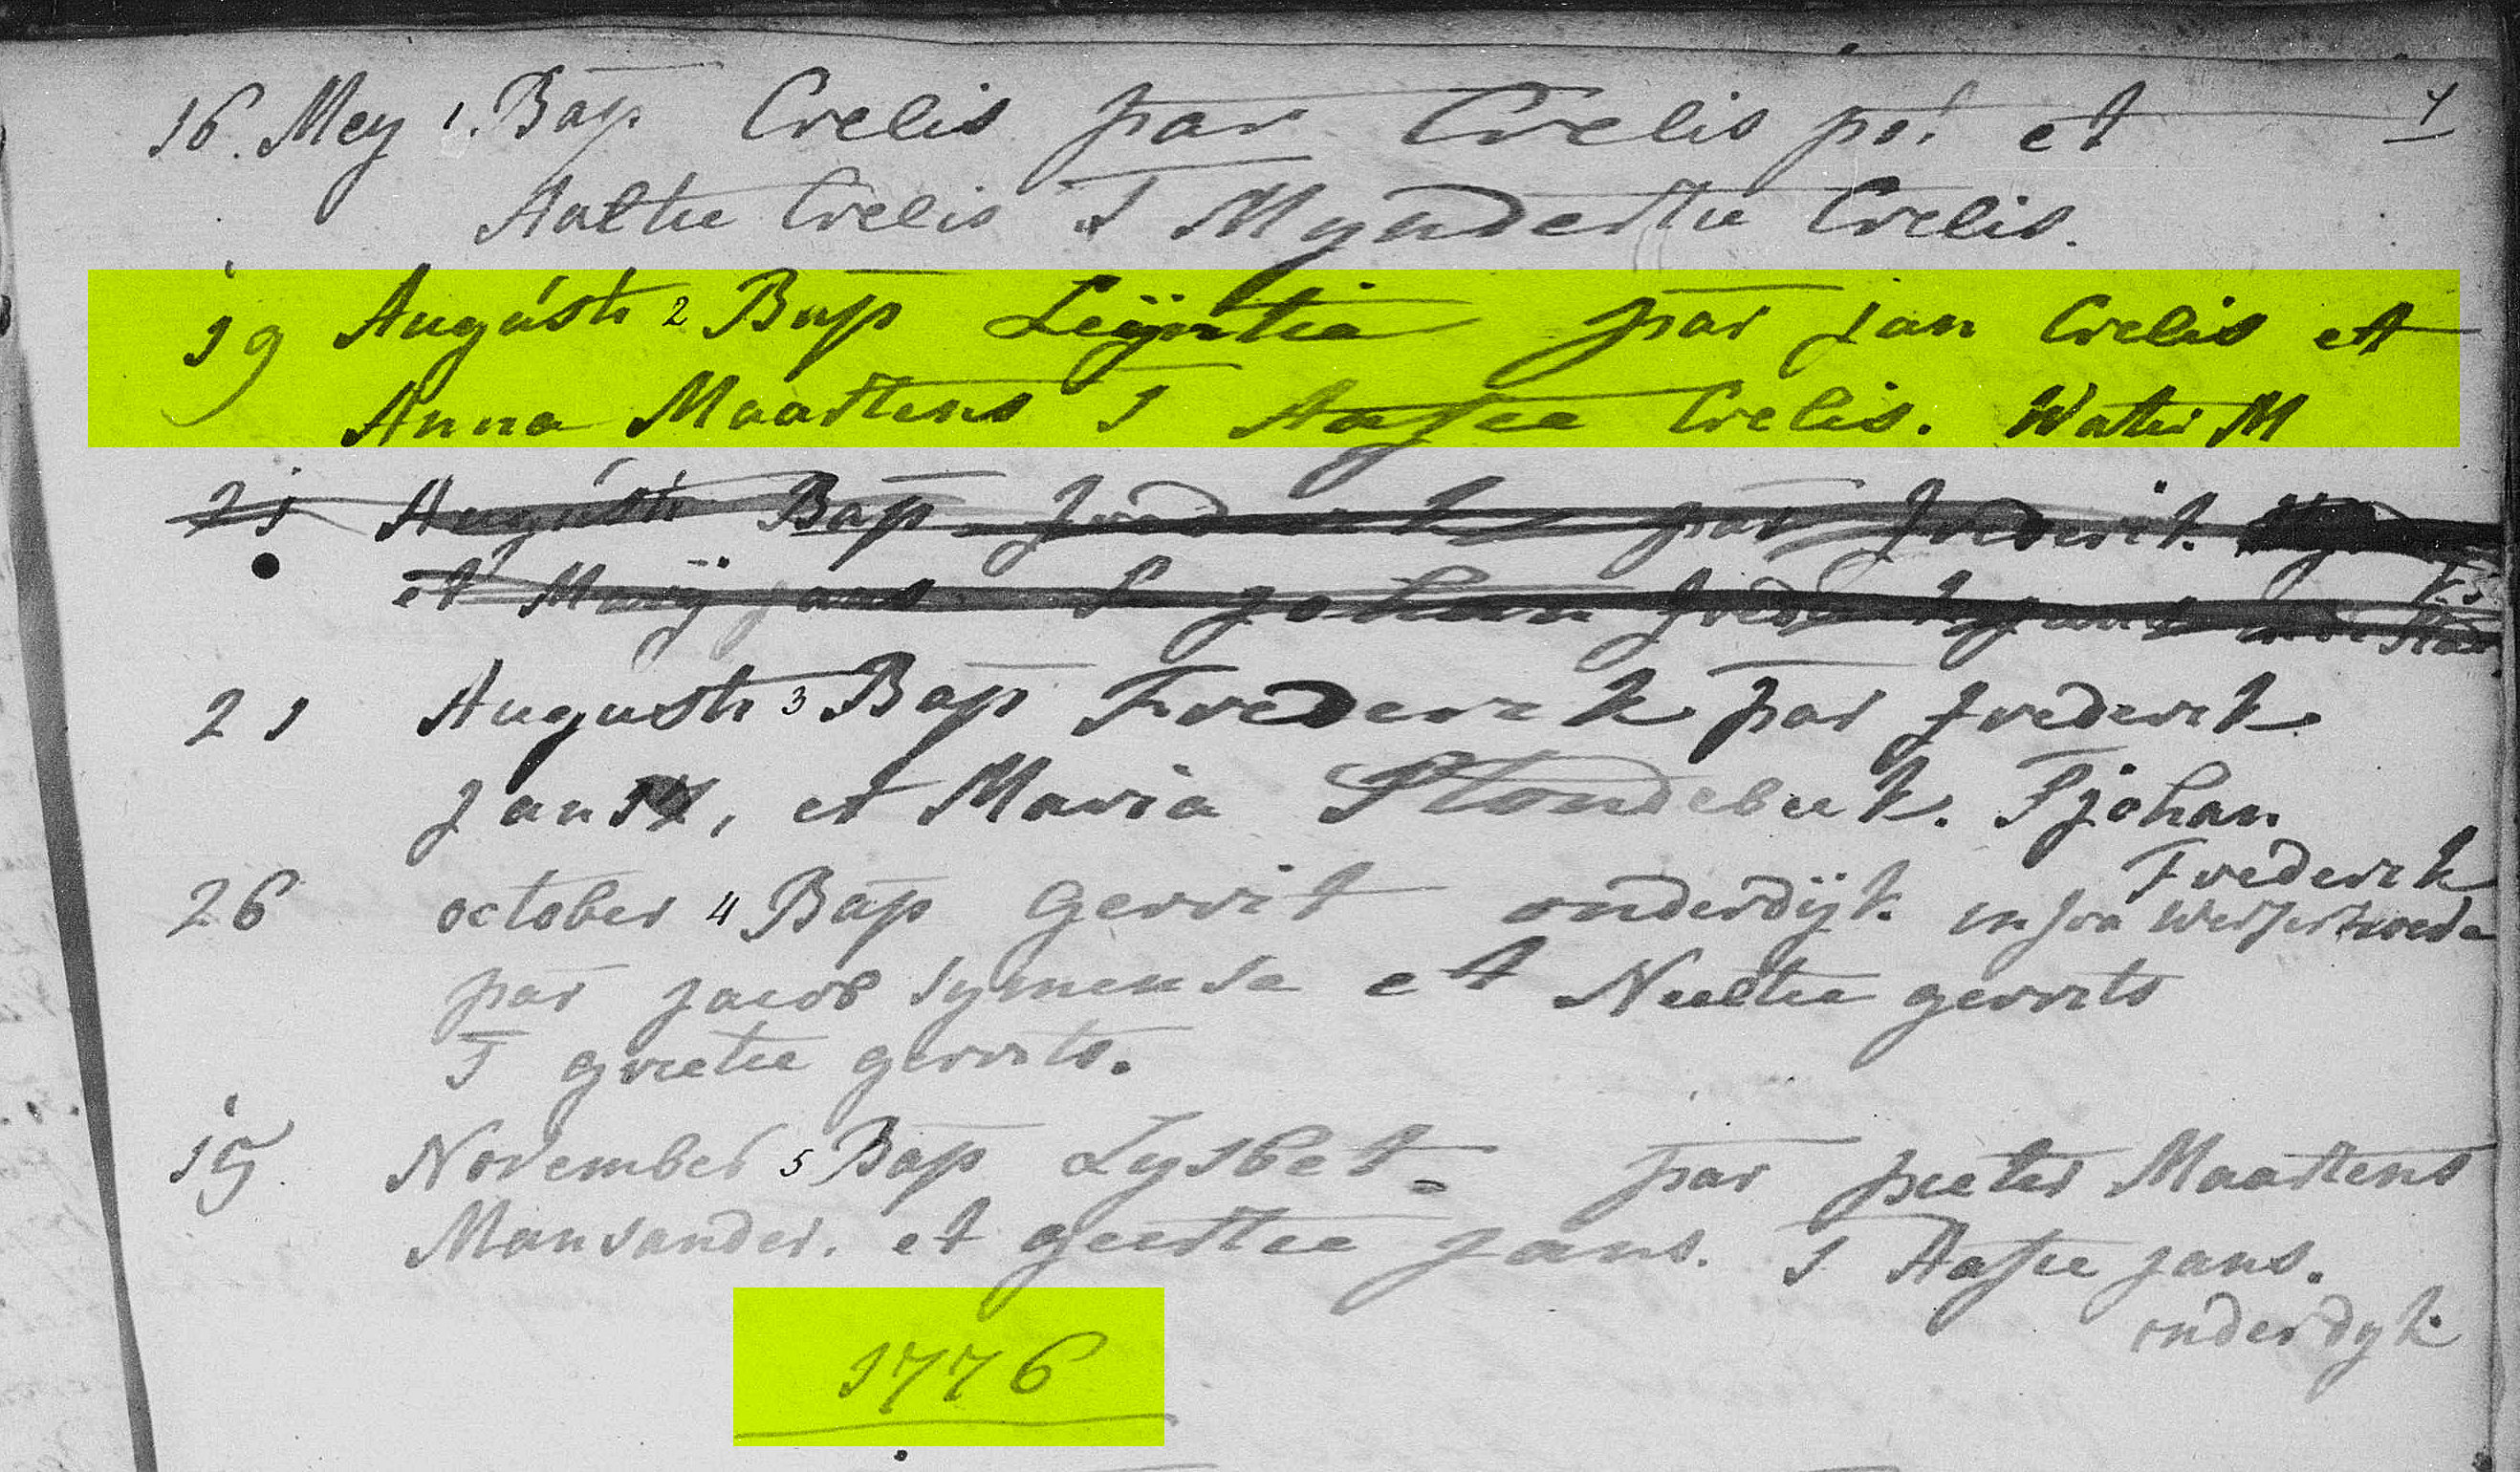 16. Mey 1. Bap Crelis par Crelis ps! et 7
Aaltie Crelis T Myndertie Crelis.
19 Augusti 2 Bap Leÿntie par jan Crelis et
Anna Maartens T Aafie Crelis. Water M
21 Augusti Bap frederik par frederik
et Marÿ jans T johan frederik
21 Augusti 3 Bap Frederik par frederik
jans, et Maria Stondebeek. T johan
Frederik
26 october 4 Bap gerrit onderdÿk infra
par jacob symense et Neeltie gerrits
T grietie gerrits.
15 November 5 Bap Lysbet par pieter Maartens
Mansander. et geertie jans. T Aafie jans.
onderdyk
1776